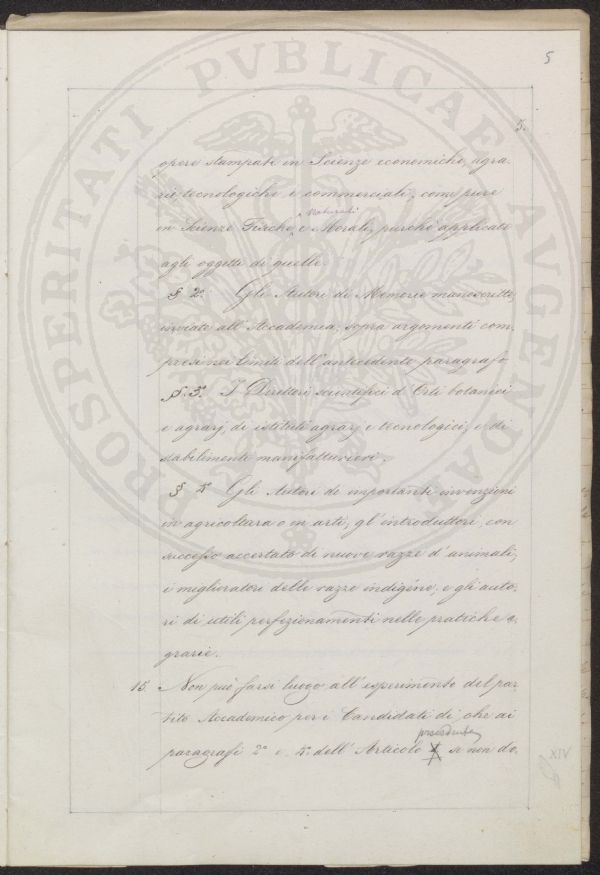 5
5.
opere stampate in Scienze economiche, agra-
rie, tecnologiche, e commerciali, come pure
Naturali
in Scienze Fisiche, e Morali, purchè applicate
agli oggetti di quelle.
§ 2°. Gli Autori di Memorie manoscritte,
inviate all'Accademia, sopra argomenti com-
presi nei limiti dell'antecedente paragrafo.
§. 3°. I Direttori scientifici d'Orti botanici
e agrarj, di istituti agrarj e tecnologici, e di
stabilimenti manifatturieri.
§ 4° Gli Autori di importanti invenzioni
in agricoltura o in arti, gl'introduttori, con
successo accertato di nuove razze d'animali,
i miglioratori delle razze indigene, e gli auto-
ri di utili perfezionamenti nelle pratiche a-
grarie.
15. Non può farsi luogo all'esperimento del par-
tito Accademico per i Candidati di che ai
precedente
paragrafi 2° e 4° dell'Articolo se non do-
XIV
PROSPERITATI PVBLICAE AVGENDAE